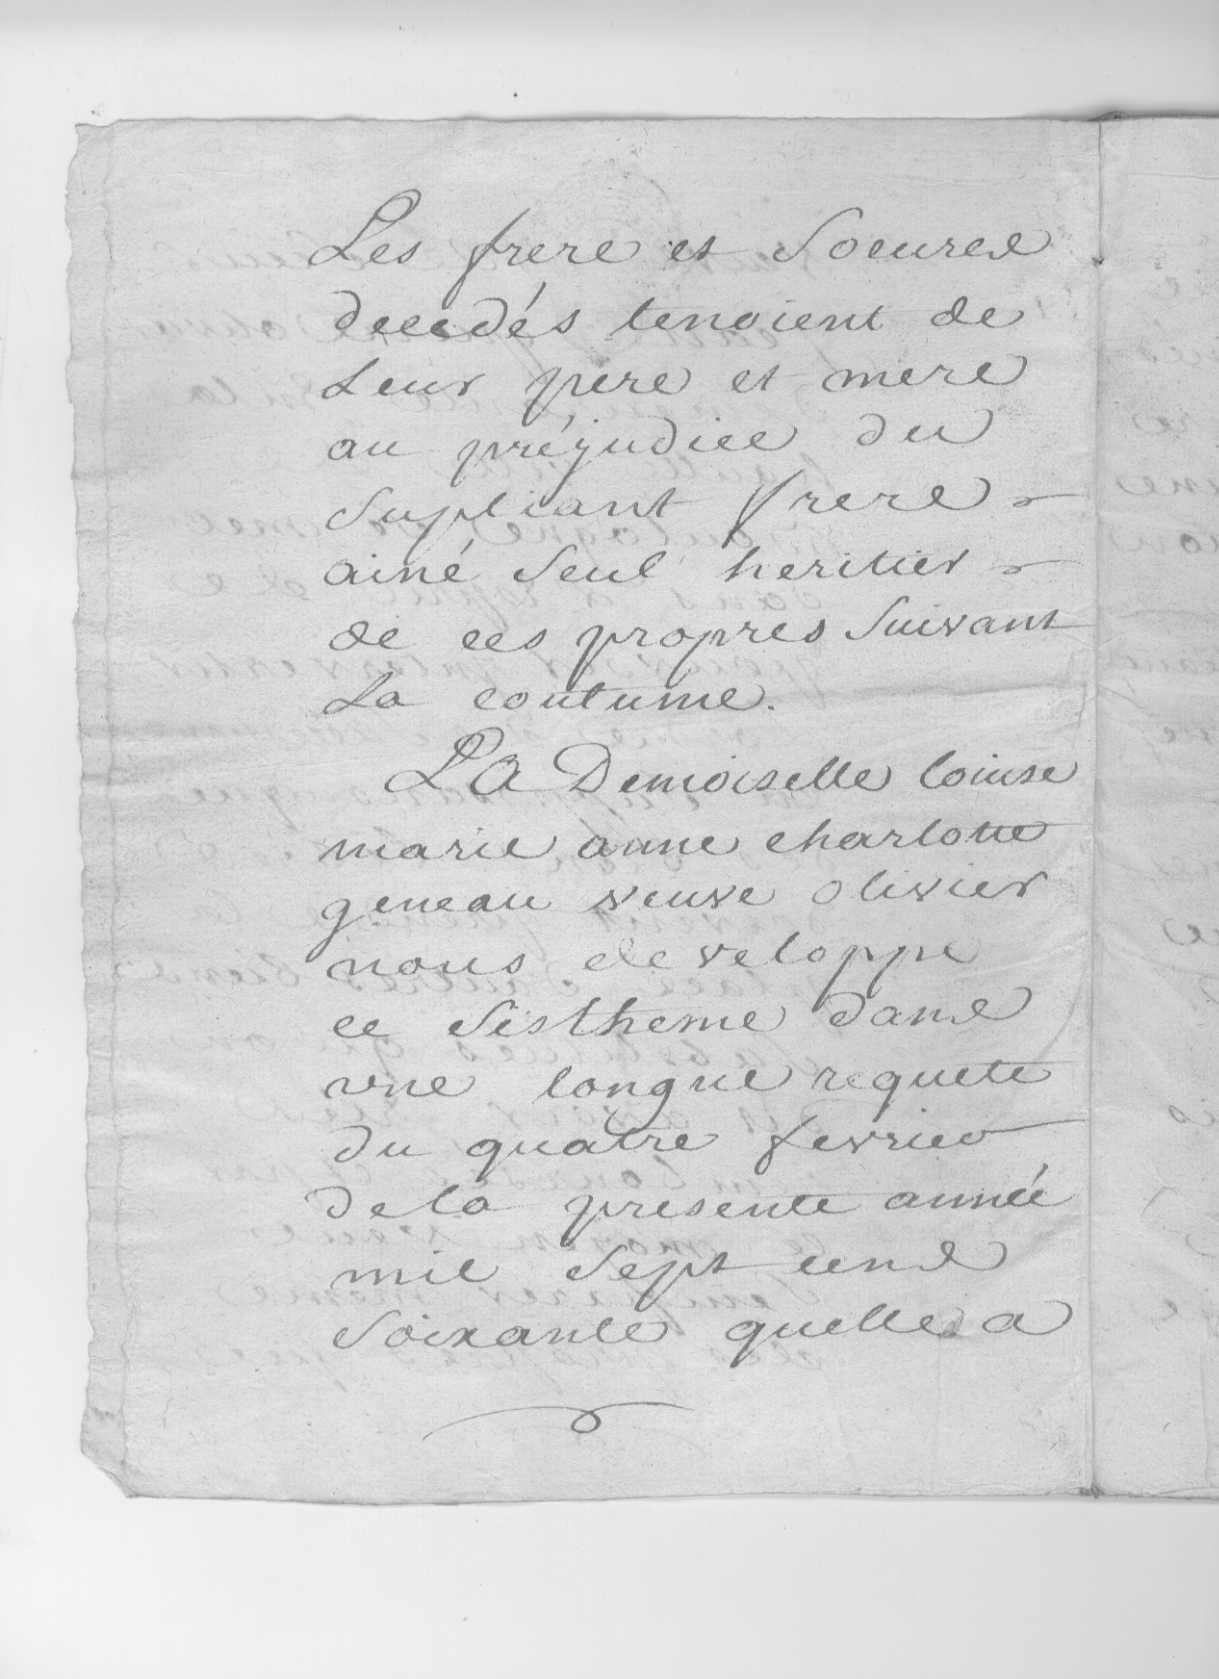 Les frere et Soeures
decedés tenoient de
Leur pere et mere
au préjudice du
Supliant frere
ainé Seul heritier
de ces propres Suivant
La coutume.
LA Demoiselle louise
marie anne charlotte
geneau veuve olivier
nous developpe
ce Sistheme dans
vne longue requete
du quatre fevrier
dela presente année
mil Sept cens
Soixante quelle a